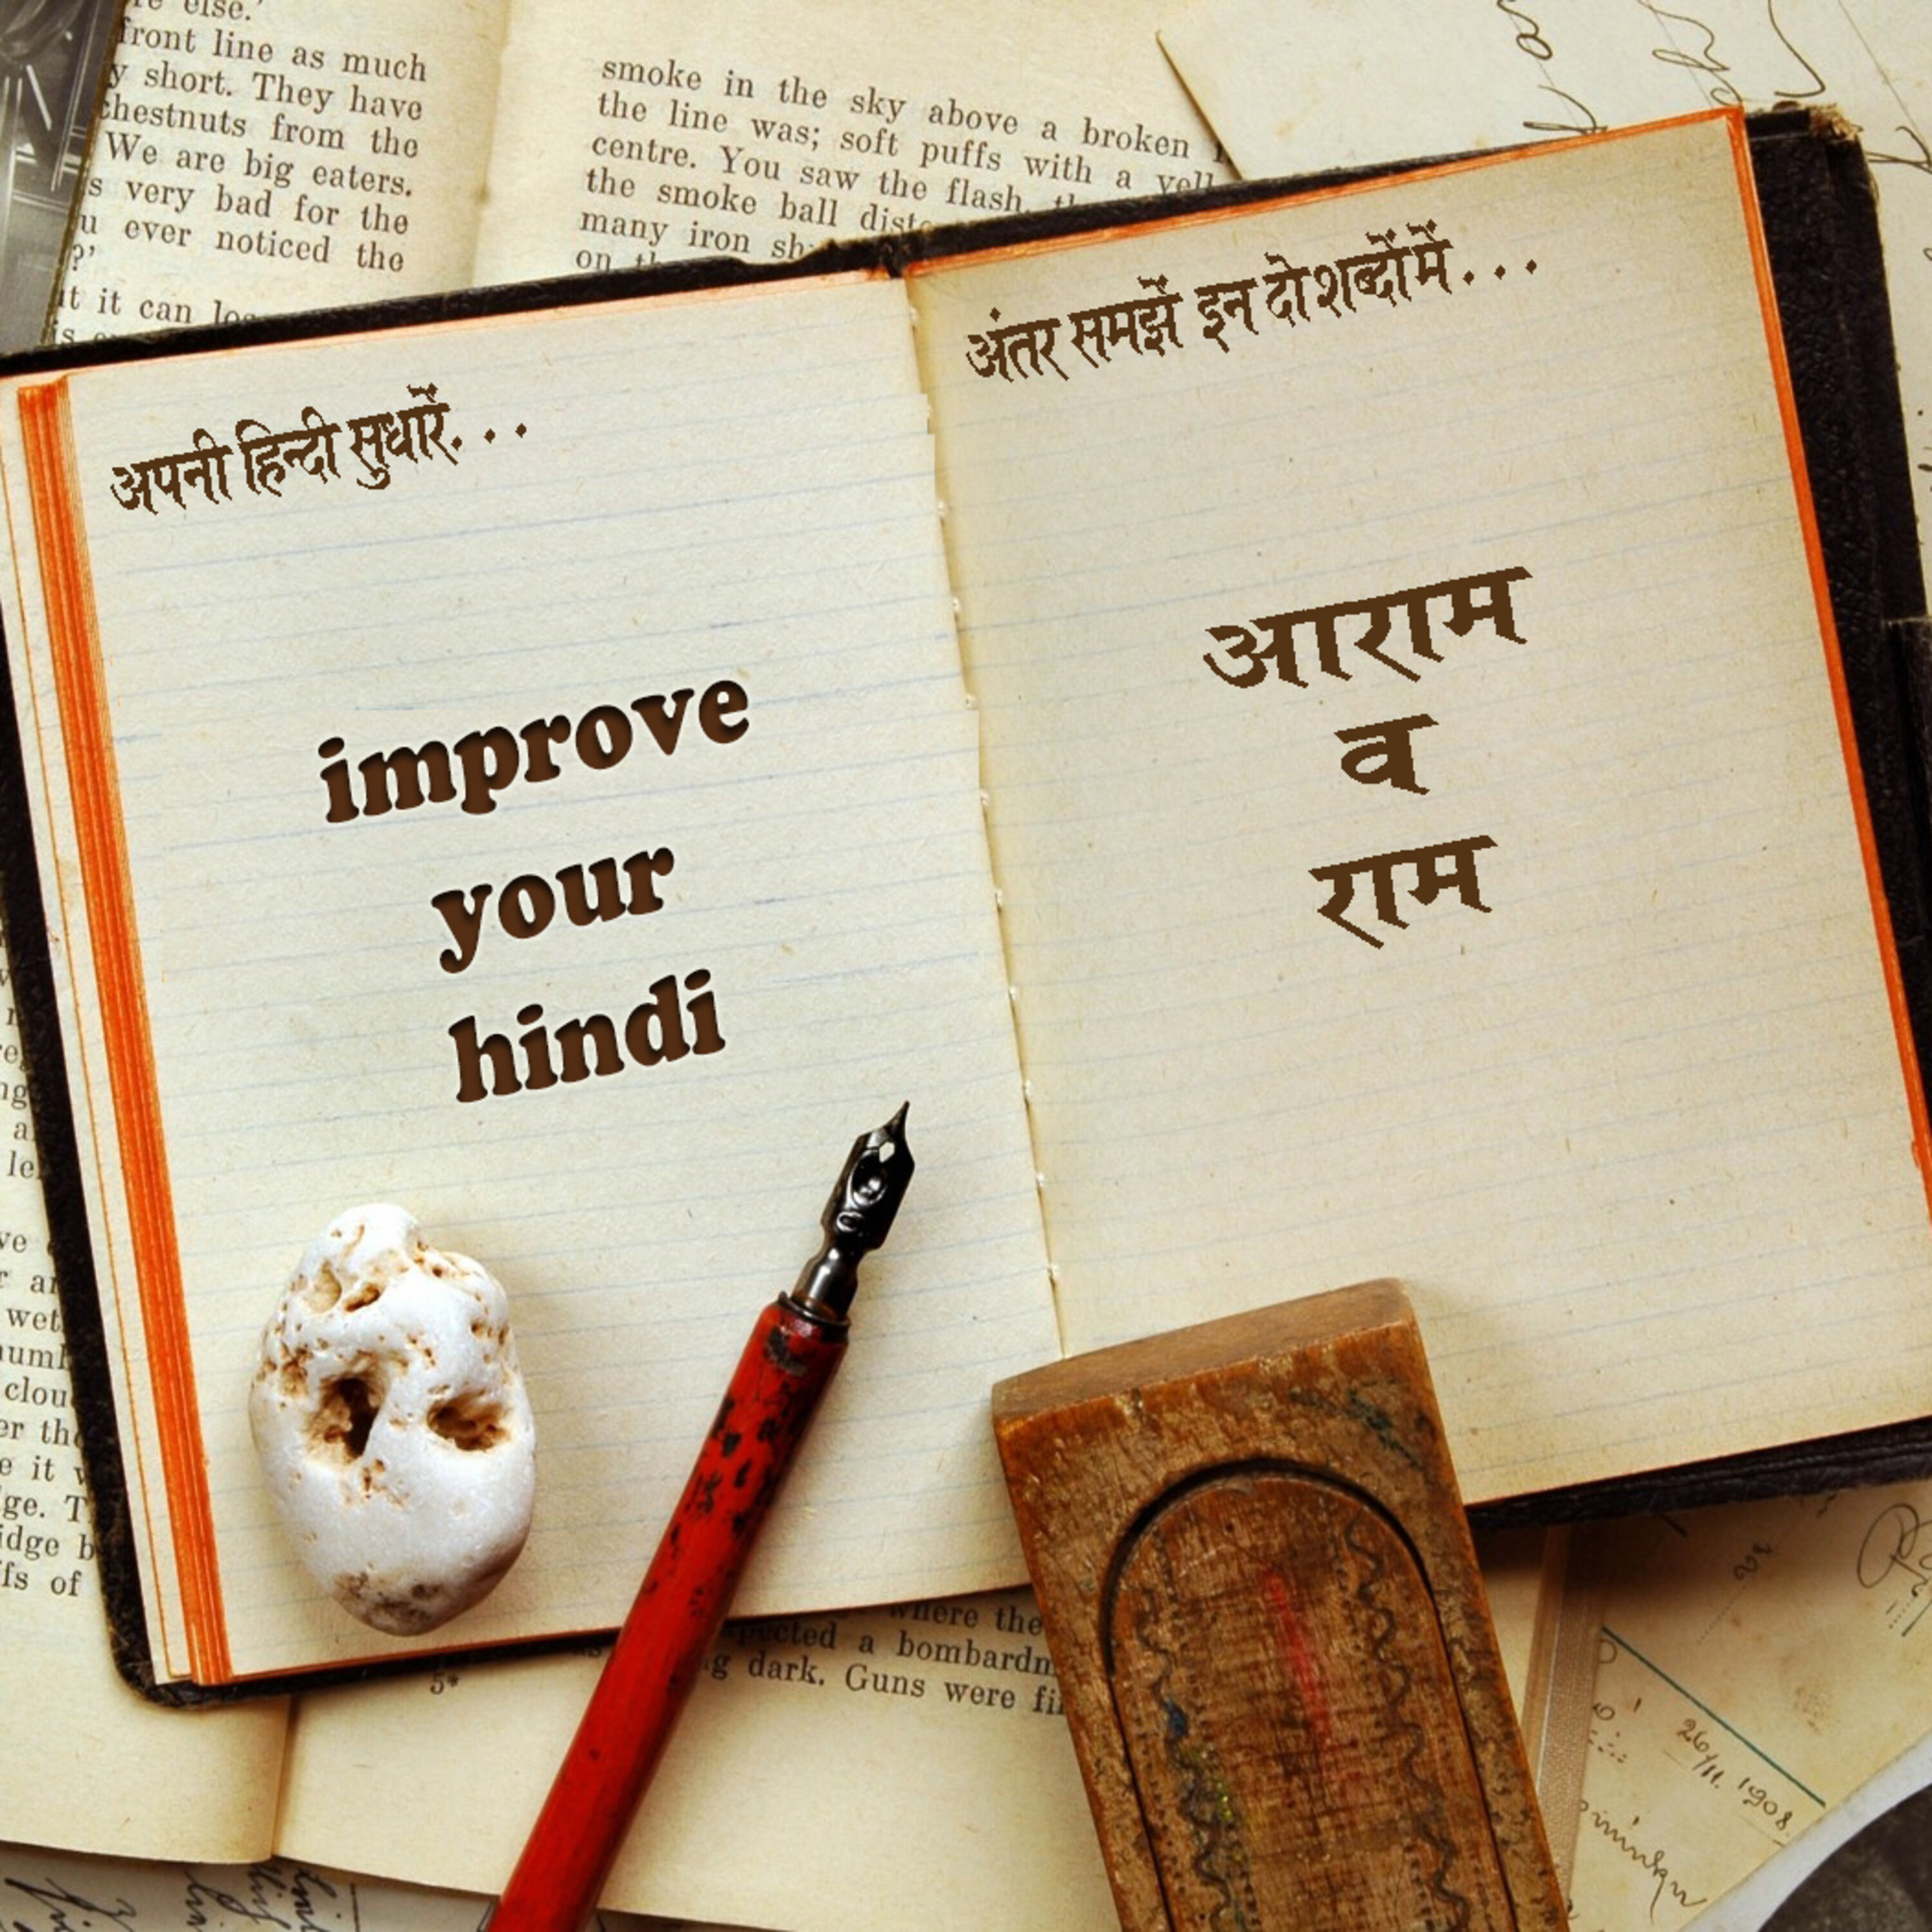 re else.'
front line as much
y short. They have
chestnuts from the
We are big eaters.
s very bad for the
u ever noticed the
?'
it it can
smoke in the sky above a broken
the line was; soft puffs with a
centre. You saw the flash,
the smoke ball
many iron
on
अपनी हिन्दी सुधारें...
improve
your
hindi
अंतर समझें इन दो शब्दों में...
आराम
व
राम
where the
a bombardm
dark. Guns were
5*
wet
clou
er the
e it
ge. T
idge b
fs of
26/11. 1908.